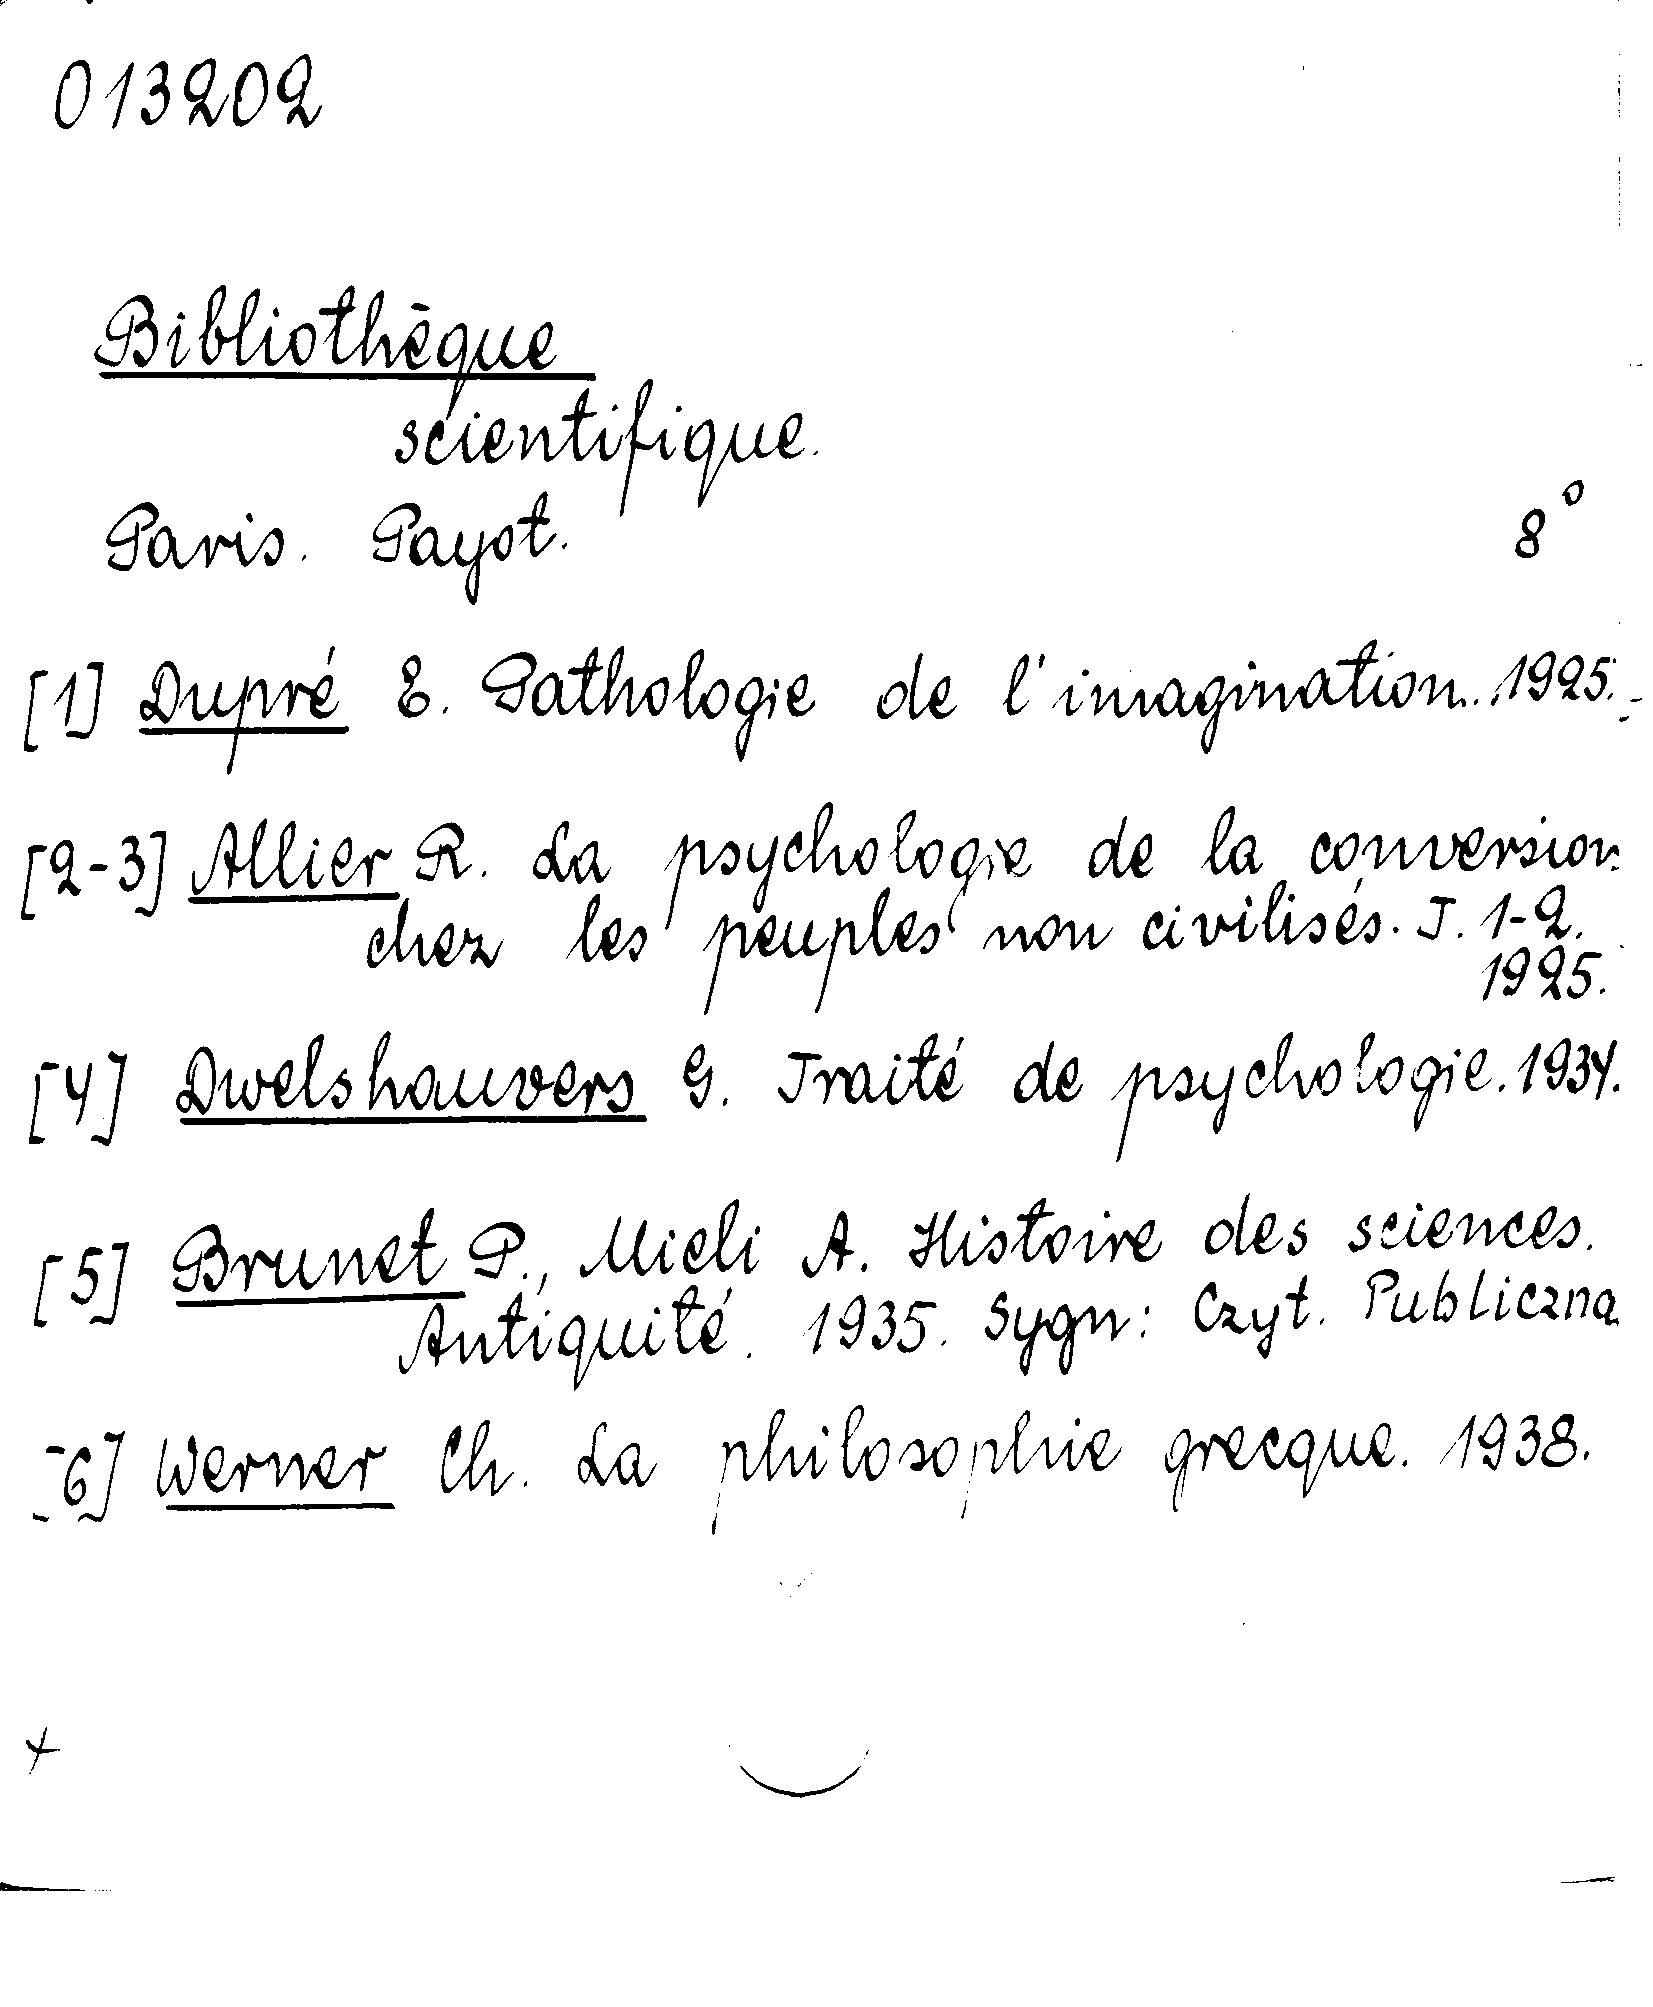 013202
Bibliothèque
scientifique.
Paris. Payot. 8°
[1] Dupré E. Pathologie de l'imagination. 1925.
[2-3] Allier R. La psychologie de la conversion
chez les peuples non civilisés. T. 1-2.
1925.
[4] Dwelshauvers G. Traité de psychologie. 1934.
[5] Brunet P., Mieli A. Histoire des sciences.
Antiquité. 1935. Sygn: Czyt. Publiczna
[6] Werner Ch. La philosophie grecque. 1938.
+